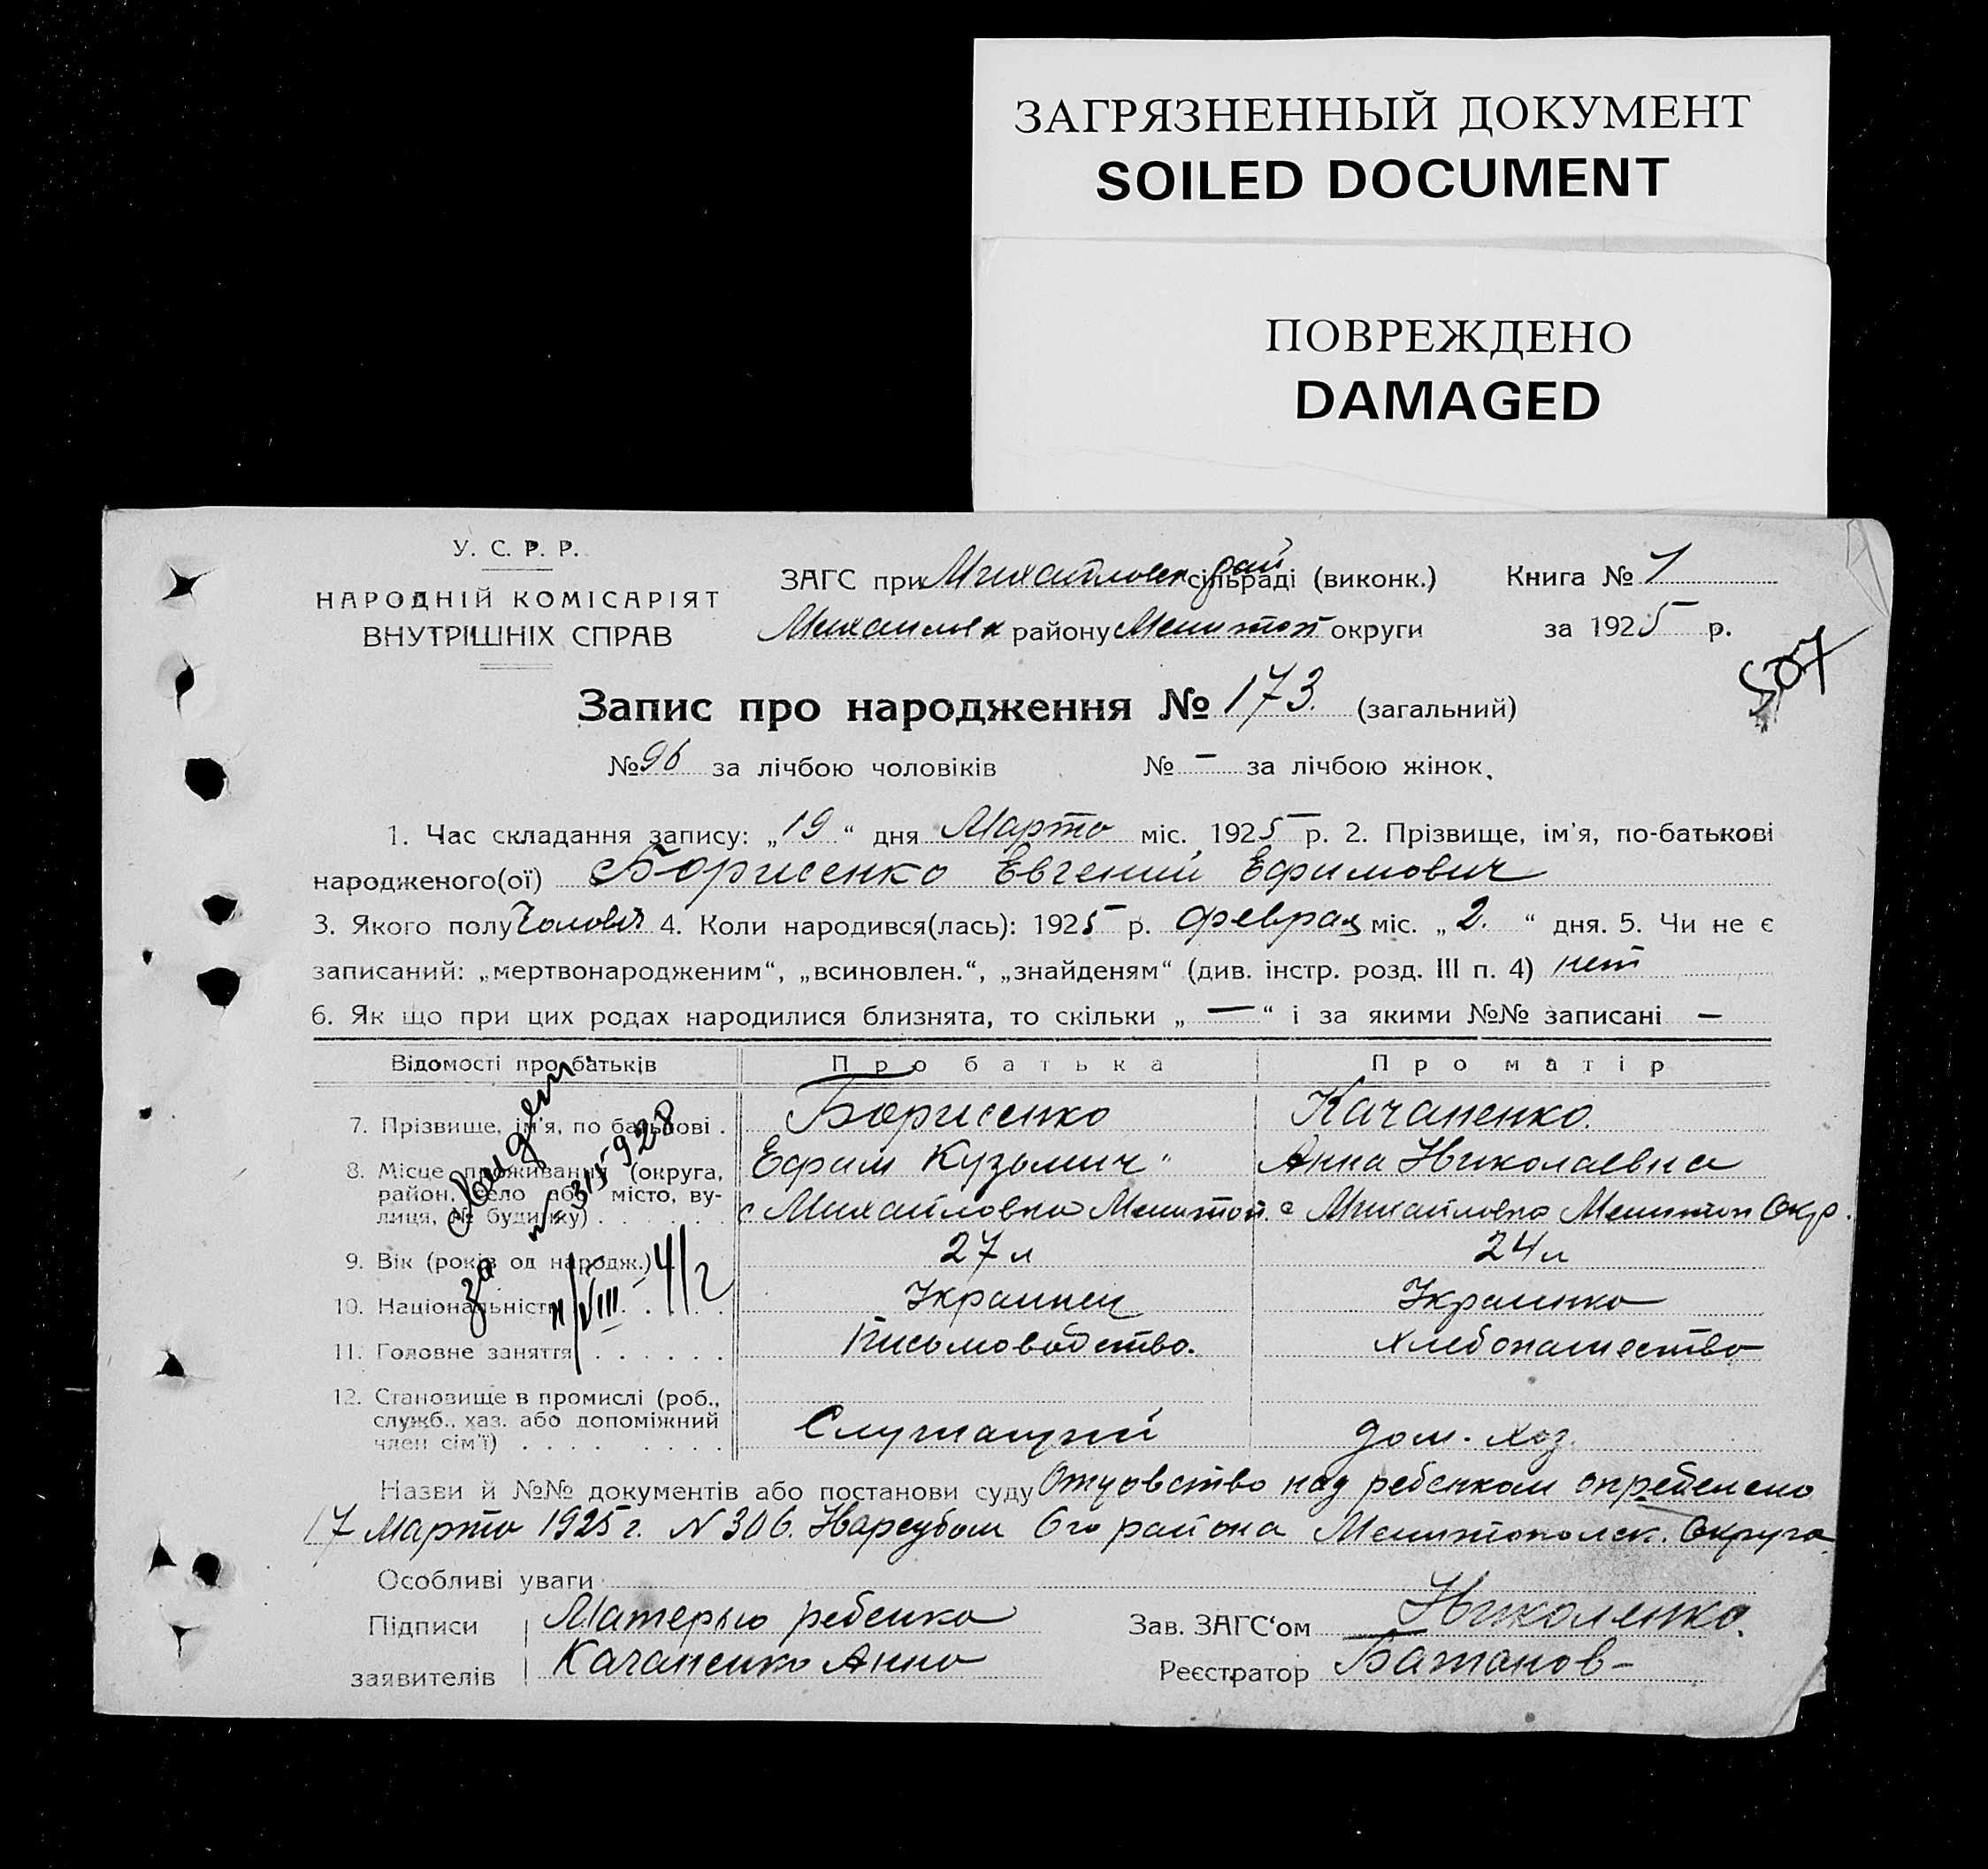 ЗАГРЯЗНЕННЫЙ ДОКУМЕНТ
SOILED DOCUMENT
ПОВРЕЖДЕНО
DAMAGED
У. С. Р. Р.
НАРОДНІЙ КОМІСАРІЯТ
ВНУТРІШНІХ СПРАВ
ЗАГС при Михайловск рай сільраді (виконк.) Книга № 1
Михайловск району Мелитоп округи за 1925 р.
507
Запис про народження № 173. (загальний)
№ 96 за лічбою чоловіків № — за лічбою жінок.
1. Час складання запису: „19“ дня Марта міс. 1925 р. 2. Прізвище, ім'я, по-батькові
народженого(ої) Борисенко Евгений Ефимович
3. Якого полу Чоловіч 4. Коли народився(лась): 1925 р. феврал міс. „2.“ дня. 5. Чи не є
записаний: „мертвонародженим“, „всиновлен.“, „знайденям“ (див. інстр. розд. III п. 4) нет
6. Як що при цих родах народилися близнята, то скільки „—“ і за якими №№ записані —
Відомості про батьків Про батька Про матір
7. Прізвище, ім'я, по батькові . Борисенко Качаненко.
8. Місце проживання (округа, Ефим Кузьмич Анна Николаевна
район, село або місто, ву-
лиця, № будинку) . . . . . . с Михайловка Мелитоп. с Михайловка Мелитоп Окр.
9. Вік (років од народж.) 27 л 24 л
10. Національність . . . Украинец Украинка
11. Головне заняття . . . . . . Письмоводство. Хлебопашество
12. Становище в промислі (роб.,
служб., хаз. або допоміжний
член сім'ї) . . . . . . . . Служащий дом. хоз.
Назви й №№ документів або постанови суду Отцовство над ребенком определено
17 Марта 1925 г. N 306. Нарсудом 6го района Мелитопольск. Округа.
Особливі уваги
Підписи Матерью ребенка Зав. ЗАГС'ом Николенко.
заявителів Качаненко Анна Реєстратор Батанов